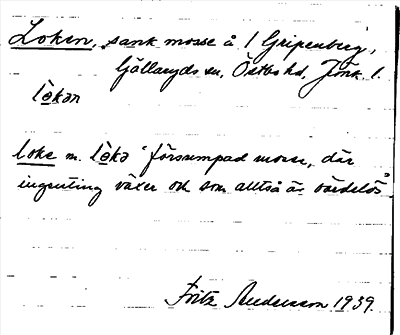 Loken, sank mosse å 1 Gripenberg,
Gällaryds sn, Östbo hd, Jönk. l.
lò̱kən
loke m. lò̱kə "försumpad mosse, där
ingenting växer och som alltså är värdelös"
Fritz Andersson 1939.